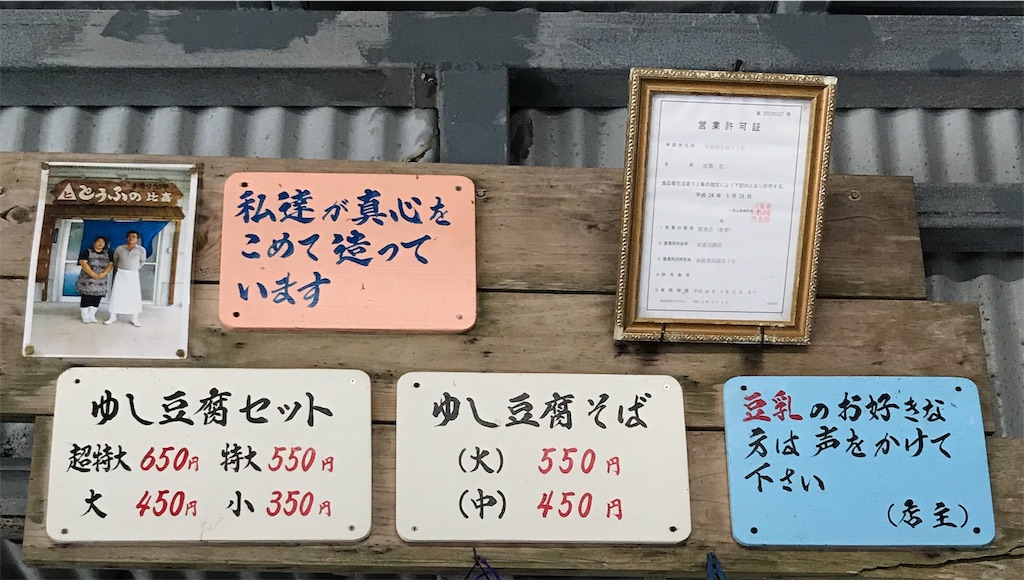 とうふの比嘉
私達が真心を
こめて造って
います
営業許可証
ゆし豆腐セット
超特大 650円 特大 550円
大 450円 小 350円
ゆし豆腐そば
(大) 550円
(中) 450円
豆乳のお好きな
方は声をかけて
下さい
(店主)